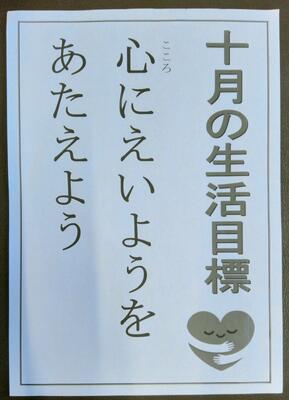 十月の生活目標
心にえいようを
こころ
あたえよう